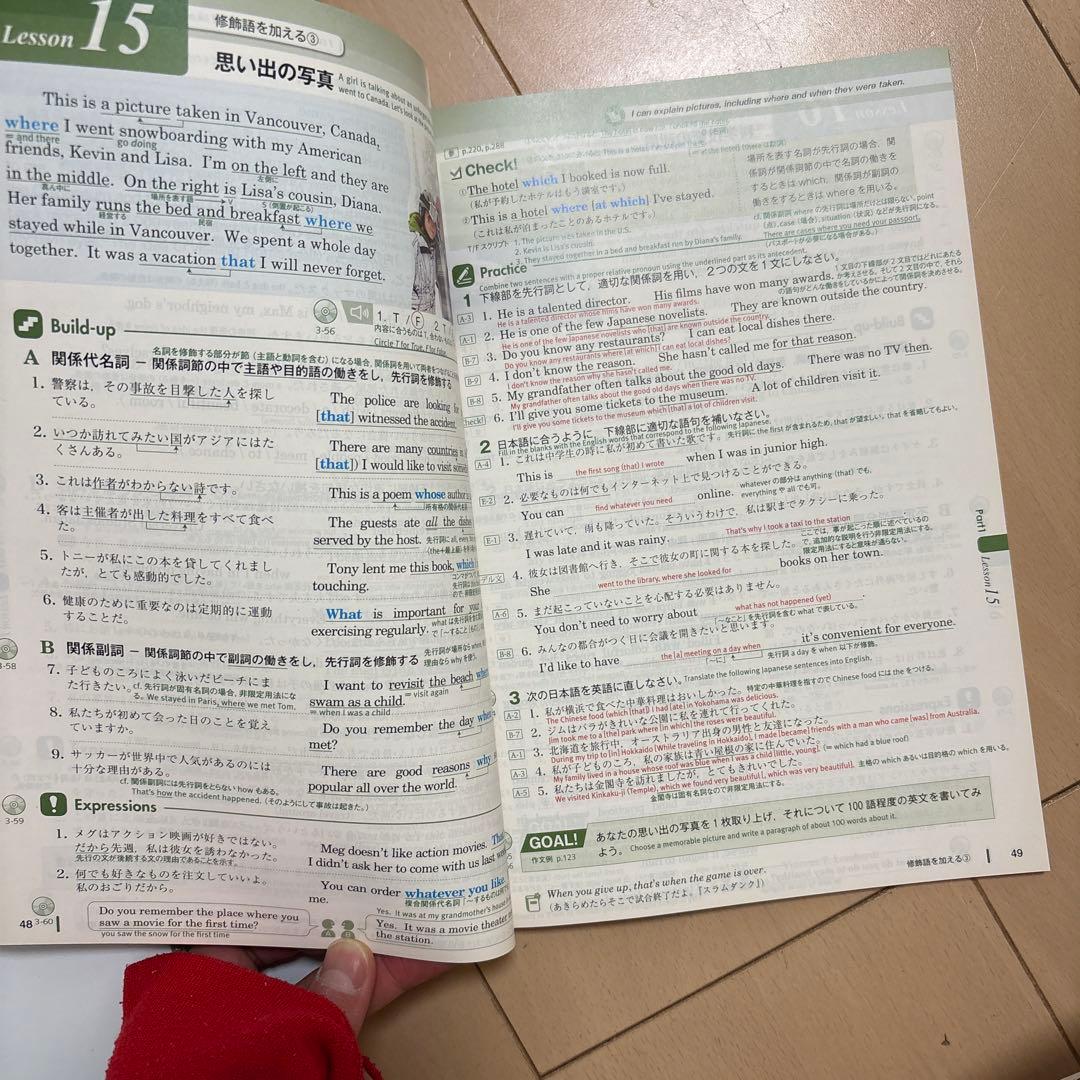 Lesson 15
修飾語を加える③
思い出の写真
A girl is talking about an
went to Canada. Let's look at the
This is a picture taken in Vancouver, Canada,
where I went snowboarding with my American
= and there
go doing
friends, Kevin and Lisa. I'm on the left and they are
左側に
in the middle. On the right is Lisa's cousin, Diana.
真ん中に
場所を表す語
V
S (倒置が起こる)
Her family runs the bed and breakfast where we
経営する
民宿
stayed while in Vancouver. We spent a whole day
together. It was a vacation that I will never forget.
3-56
1. T / F 2. T
内容に合うものは T, 合わない
Circle T for True, F for False.
Build-up
A 関係代名詞 − 関係詞節の中で主語や目的語の働きをし，先行詞を修飾する
名詞を修飾する部分が節（主語と動詞を含む）になる場合, 関係詞を用いて両者をつなげ
1. 警察は，その事故を目撃した人を探し
ている。
The police are looking
[that] witnessed the accident.
2. いつか訪れてみたい国がアジアにはた
くさんある。
There are many countries
[that]) I would like to visit
3. これは作者がわからない詩です。
This is a poem whose author
所有格の関係代名詞
4. 客は主催者が出した料理をすべて食べ
た。
The guests ate all the dishes
served by the host.
先行詞に all, every
(the+最上級)
5. トニーが私にこの本を貸してくれまし
たが，とても感動的でした。
Tony lent me this book, which
touching.
6. 健康のために重要なのは定期的に運動
することだ。
What is important for your
exercising regularly.
3-58
B 関係副詞 − 関係詞節の中で副詞の働きをし，先行詞を修飾する
先行詞が場所なら where,
理由なら why を使う。
7. 子どものころによく泳いだビーチにま
た行きたい。
cf. 先行詞が固有名詞の場合, 非限定用法にな
る。We stayed in Paris, where we met Tom.
I want to revisit the beach where
= visit again
swam as a child.
= when I was a child
8. 私たちが初めて会った日のことを覚え
ていますか。
Do you remember the day when
met?
9. サッカーが世界中で人気があるのには
十分な理由がある。
There are good reasons why
popular all over the world.
cf. 関係副詞には先行詞をとらない how もある。
That's how the accident happened. (そのようにして事故は起きた。)
3-59
Expressions
1. メグはアクション映画が好きではない。
だから先週，私は彼女を誘わなかった。
先行の文が後続する文の理由であることを示す。
Meg doesn't like action movies. That
I didn't ask her to come with us last week.
2. 何でも好きなものを注文していいよ。
私のおごりだから。
You can order whatever you like.
複合関係代名詞
me.
48
3-60
Do you remember the place where you
saw a movie for the first time?
you saw the snow for the first time
A
B
Yes. It was at my grandmother's house
Yes. It was a movie theater
the station.
I can explain pictures, including where and when they were taken.
p.220, p.288
Check!
①The hotel which I booked is now full.
(私が予約したホテルはもう満室です。)
②This is a hotel where [at which] I've stayed.
(これは私が泊まったことのあるホテルです。)
場所を表す名詞が先行詞の場合，関
係詞が関係詞節の中で名詞の働きを
するときは which, 関係詞が副詞の
働きをするときは where を用いる。
cf. 関係副詞 where の先行詞は場所だけとは限らない。point
(点), case (場合), situation (状況) などが先行詞になる。
There are cases where you need your passport.
(パスポートが必要になる場合がある。)
T/F スクリプト
1. The picture was taken in the U.S.
2. Kevin is Lisa's cousin.
3. They stayed together in a bed and breakfast run by Diana's family.
Practice
Combine two sentences with a proper relative pronoun using the underlined part as its antecedent.
1 下線部を先行詞として，適切な関係詞を用い，2つの文を1文にしなさい。
A-3
1. He is a talented director. His films have won many awards.
He is a talented director whose films have won many awards.
A-1
2. He is one of the few Japanese novelists. They are known outside the country.
He is one of the few Japanese novelists who [that] are known outside the country.
B-7
3. Do you know any restaurants? I can eat local dishes there.
Do you know any restaurants where [at which] I can eat local dishes?
B-9
4. I don't know the reason. She hasn't called me for that reason.
I don't know the reason why she hasn't called me.
B-8
5. My grandfather often talks about the good old days. There was no TV then.
My grandfather often talks about the good old days when there was no TV.
Check!
6. I'll give you some tickets to the museum. A lot of children visit it.
I'll give you some tickets to the museum which [that] a lot of children visit.
2 日本語に合うように，下線部に適切な語句を補いなさい。
Fill in the blanks with the English words that correspond to the following Japanese.
A-4
1. これは中学生の時に私が初めて書いた歌です。
先行詞に the first が含まれるため, that が望ましい。that を省略してもよい。
This is the first song (that) I wrote when I was in junior high.
E-2
2. 必要なものは何でもインターネット上で見つけることができる。
You can find whatever you need online.
whatever の部分は anything (that) でも,
everything や all でも可。
E-1
3. 遅れていて，雨も降っていた。そういうわけで，私は駅までタクシーに乗った。
I was late and it was rainy. That's why I took a taxi to the station
デル文
4. 彼女は図書館へ行き，そこで彼女の町に関する本を探した。
She went to the library, where she looked for books on her town.
ここでは, 事が起こった順に述べているの
で, 追加的な説明を行う非限定用法にする。
限定用法にすると意味が通らない。
A-6
5. まだ起こっていないことを心配する必要はありません。
You don't need to worry about what has not happened (yet).
「～なこと」を先行詞を含む what で表している。
B-8
6. みんなの都合がつく日に会議を開きたいと思います。
I'd like to have the [a] meeting on a day when it's convenient for everyone.
「～に」
先行詞 a day を when 以下が修飾。
3 次の日本語を英語に直しなさい。
Translate the following Japanese sentences into English.
A-2
1. 私が横浜で食べた中華料理はおいしかった。
特定の中華料理を指すので Chinese food には the をつける。
The Chinese food (which [that]) I had [ate] in Yokohama was delicious.
B-7
2. ジムはバラがきれいな公園に私を連れて行ってくれた。
Jim took me to a [the] park where [in which] the roses were beautiful.
A-1
3. 北海道を旅行中，オーストラリア出身の男性と友達になった。
During my trip to [in] Hokkaido (While traveling in Hokkaido), I made [became] friends with a man who came [was] from Australia.
A-3
4. 私が子どものころ，私の家族は青い屋根の家に住んでいた。
My family lived in a house whose roof was blue when I was a child [little, young]. (= which had a blue roof)
A-5
5. 私たちは金閣寺を訪れましたが，とてもきれいでした。
主格の which あるいは目的格の which を用いる。
We visited Kinkaku-ji (Temple), which we found very beautiful [, which was very beautiful].
金閣寺は固有名詞なので非限定用法にする。
GOAL!
作文例 p.123
あなたの思い出の写真を1枚取り上げ，それについて100語程度の英文を書いてみ
よう。
Choose a memorable picture and write a paragraph of about 100 words about it.
修飾語を加える③
49
When you give up, that's when the game is over.
(あきらめたらそこで試合終了だよ。『スラムダンク』)
Part1
Lesson 15